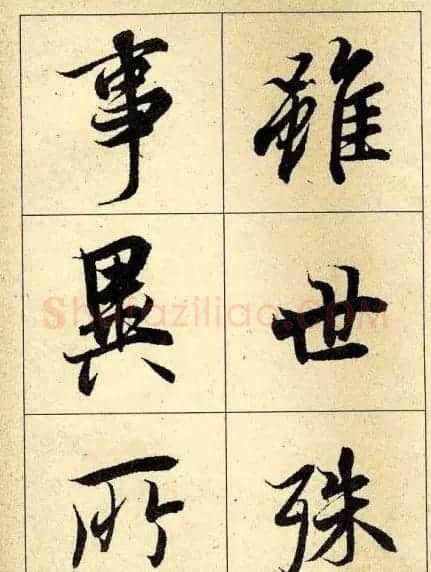 雖世殊
事異所
Shufaziliao.com